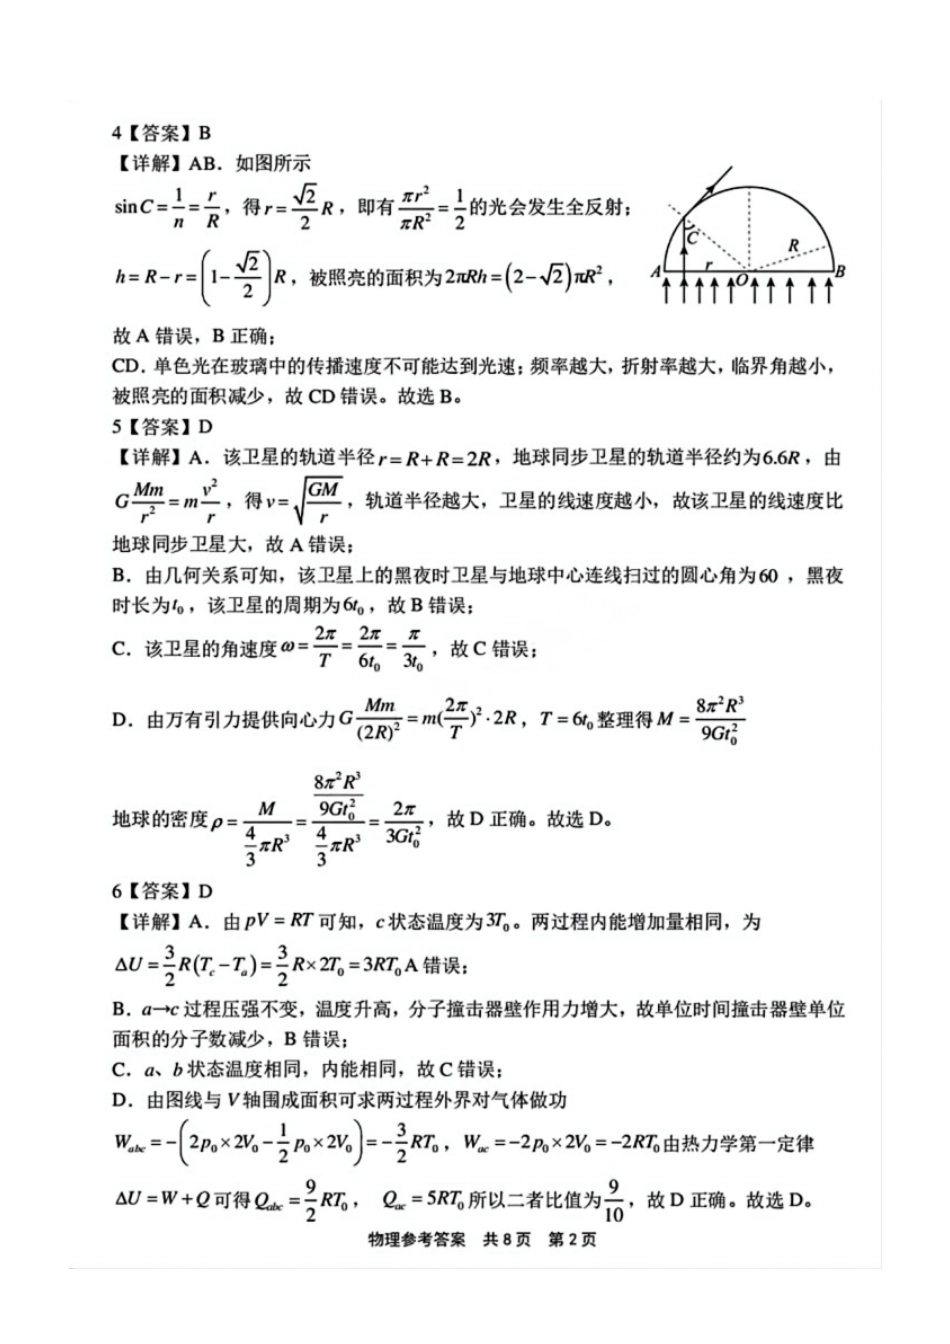 4【答案】B
【详解】AB．如图所示
sinC = 1/n = r/R，得r = √2/2 R，即有 πr²/πR² = 1/2 的光会发生全反射；
h = R − r = (1 − √2/2)R，被照亮的面积为2πRh = (2−√2)πR²，
C
R
A
r
O
B
故 A 错误，B 正确；
CD．单色光在玻璃中的传播速度不可能达到光速；频率越大，折射率越大，临界角越小，
被照亮的面积减少，故 CD 错误。故选 B。
5【答案】D
【详解】A．该卫星的轨道半径r = R+R = 2R，地球同步卫星的轨道半径约为6.6R，由
G Mm/r² = m v²/r，得v = √(GM/r)，轨道半径越大，卫星的线速度越小，故该卫星的线速度比
地球同步卫星大，故 A 错误；
B．由几何关系可知，该卫星上的黑夜时卫星与地球中心连线扫过的圆心角为60 ，黑夜
时长为t₀，该卫星的周期为6t₀，故 B 错误；
C．该卫星的角速度ω = 2π/T = 2π/6t₀ = π/3t₀，故 C 错误；
D．由万有引力提供向心力G Mm/(2R)² = m(2π/T)²·2R，T = 6t₀整理得M = 8π²R³/9Gt₀²
地球的密度ρ = M/(4/3 πR³) = (8π²R³/9Gt₀²)/(4/3 πR³) = 2π/3Gt₀²，故 D 正确。故选 D。
6【答案】D
【详解】A．由pV = RT可知，c状态温度为3T₀。两过程内能增加量相同，为
ΔU = 3/2 R(Tc − Ta) = 3/2 R×2T₀ = 3RT₀ A 错误；
B．a→c过程压强不变，温度升高，分子撞击器壁作用力增大，故单位时间撞击器壁单位
面积的分子数减少，B 错误；
C．a、b状态温度相同，内能相同，故 C 错误；
D．由图线与 V 轴围成面积可求两过程外界对气体做功
Wabc = −(2p₀×2V₀ − 1/2 p₀×2V₀) = −3/2 RT₀，Wac = −2p₀×2V₀ = −2RT₀由热力学第一定律
ΔU = W + Q可得Qabc = 9/2 RT₀， Qac = 5RT₀所以二者比值为 9/10，故 D 正确。故选 D。
物理参考答案 共 8 页 第 2 页